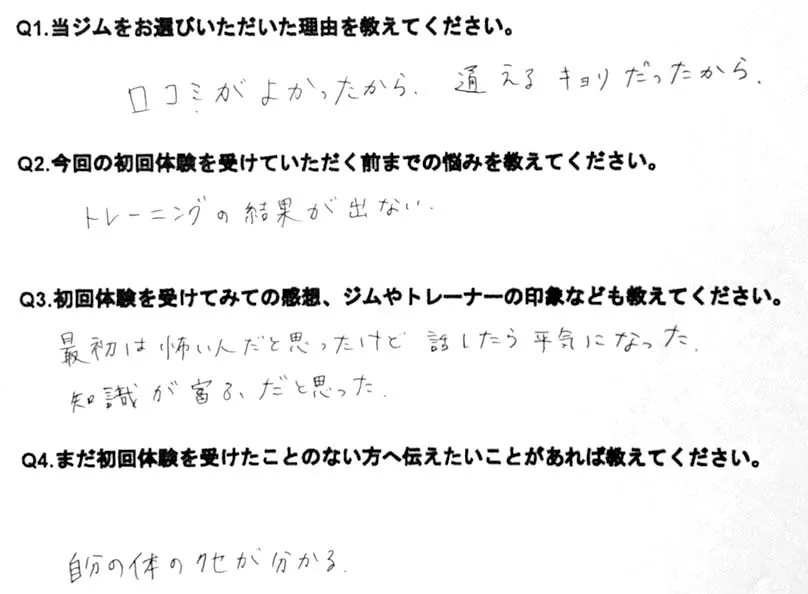 Q1.当ジムをお選びいただいた理由を教えてください。
口コミがよかったから. 通えるキョリだったから.
Q2.今回の初回体験を受けていただく前までの悩みを教えてください。
トレーニングの結果が出ない.
Q3.初回体験を受けてみての感想、ジムやトレーナーの印象なども教えてください。
最初は怖い人だと思ったけど 話したら平気になった.
知識が だと思った.
Q4.まだ初回体験を受けたことのない方へ伝えたいことがあれば教えてください。
自分の体のクセが分かる.